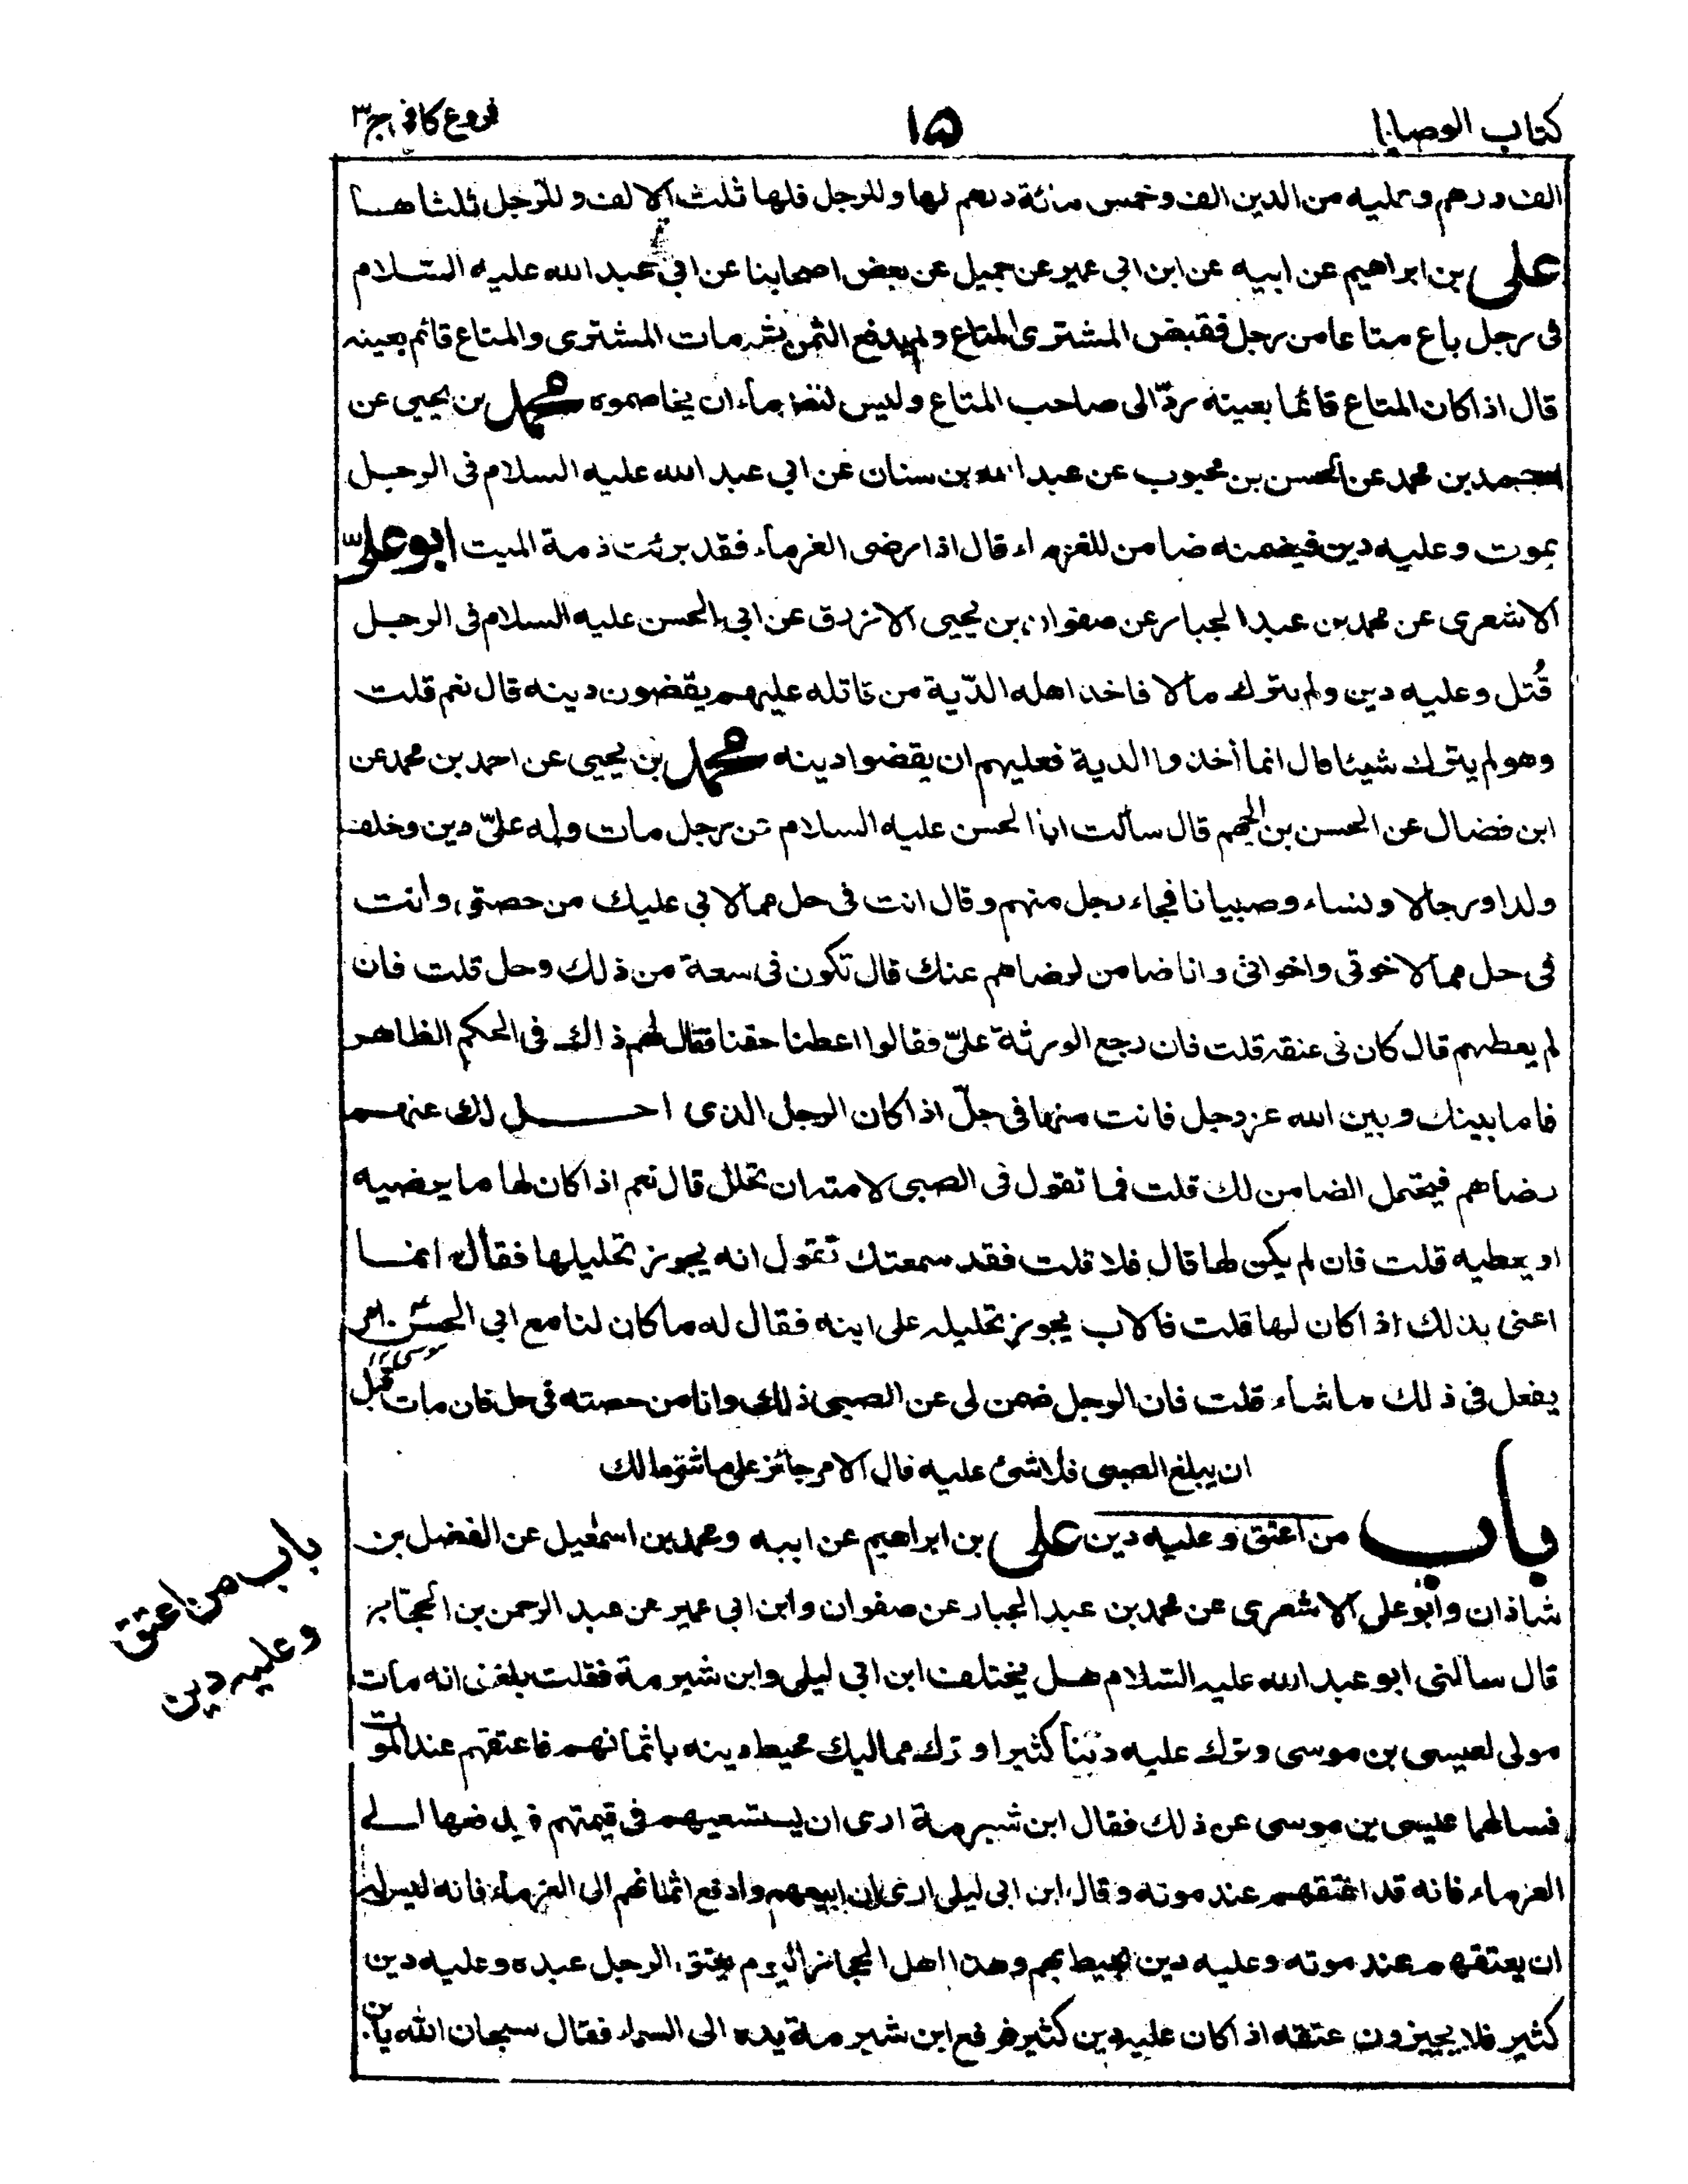 كتاب الوصايا
١٥
فروع كافى ج٣
الف درهم وعليه من الدين الف وخمس مائة درهم لها وللرجل فلها ثلث الالف وللرجل ثلثاها
على بن ابراهيم عن ابيه عن ابن ابى عمير عن جميل عن بعض اصحابنا عن ابى عبد الله عليه السلام
فى رجل باع متاعا من رجل فقبض المشترى المتاع ولم يدفع الثمن ثم مات المشترى والمتاع قائم بعينه
قال اذا كان المتاع قائما بعينه ردّ الى صاحب المتاع وليس للغرماء ان يخاصموه محمد بن يحيى عن
احمد بن محمد عن الحسن بن محبوب عن عبد الله بن سنان عن ابى عبد الله عليه السلام فى الرجل
يموت وعليه دين فيضمنه ضامن للغرماء قال اذا رضى الغرماء فقد برئت ذمة الميت ابو علىّ
الاشعرى عن محمد بن عبد الجبار عن صفوان بن يحيى الازرق عن ابى الحسن عليه السلام فى الرجل
قُتل وعليه دين ولم يترك مالا فاخذ اهله الدّية من قاتله عليهم يقضون دينه قال نعم قلت
وهو لم يترك شيئا قال انما أخذوا الدية فعليهم ان يقضوا دينه محمد بن يحيى عن احمد بن محمد عن
ابن فضال عن الحسن بن الجهم قال سألت ابا الحسن عليه السلام عن رجل مات وله علىّ دين وخلف
ولدا ورجالا ونساء وصبيانا فجاء رجل منهم وقال انت فى حل مما لا بى عليك من حصتى وانت
فى حل مما لاخوتى واخواتى وانا ضامن لرضاهم عنك قال تكون فى سعة من ذلك وحل قلت فان
لم يعطهم قال كان فى عنقه قلت فان رجع الورثة علىّ فقالوا اعطنا حقنا فقال لهم ذلك فى الحكم الظاهر
فاما بينك وبين الله عز وجل فانت منها فى حلّ اذا كان الرجل الذى احل لك عنهم
رضاهم فيحتمل الضامن لك قلت فما تقول فى الصبى لامه ان تحلل قال نعم اذا كان لها ما يرضيه
او يعطيه قلت فان لم يكن لها قال فلا قلت فقد سمعتك تقول انه يجوز تحليلها فقال انما
اعنى بذلك اذا كان لها قلت فالاب يجوز تحليله على ابنه فقال له ما كان لنا مع ابى الحسن امر
يفعل فى ذلك ما شاء قلت فان الرجل ضمن لى عن الصبى ذلك وانا من حصته فى حل فان مات قبل
ان يبلغ الصبى فلا شئ عليه قال الامر جائز على ما شرط لك
باب من اعتق وعليه دين على بن ابراهيم عن ابيه ومحمد بن اسمعيل عن الفضل بن
شاذان وابو على الاشعرى عن محمد بن عبد الجبار عن صفوان وابن ابى عمير عن عبد الرحمن بن الحجّاج
قال سالنى ابو عبد الله عليه السلام هل يختلف ابن ابى ليلى وابن شبرمة فقلت بلغنى انه مات
مولى لعيسى بن موسى وترك عليه دينا كثيرا وترك مماليك محيط دينه باثمانهم فاعتقهم عند الموت
فسالهما عيسى بن موسى عن ذلك فقال ابن شبرمة ارى ان يستسعيهم فى قيمتهم فيدفعها الى
الغرماء فانه قد اعتقهم عند موته وقال ابن ابى ليلى ارى ان ابيعهم وادفع اثمانهم الى الغرماء فانه ليس له
ان يعتقهم عند موته وعليه دين يحيط بهم وهذا اهل الحجاز اليوم يعتق الرجل عبده وعليه دين
كثير فلا يجيزون عتقه اذا كان عليه دين كثير فرفع ابن شبرمة يده الى السماء فقال سبحان الله يابن
باب من اعتق
وعليه دين